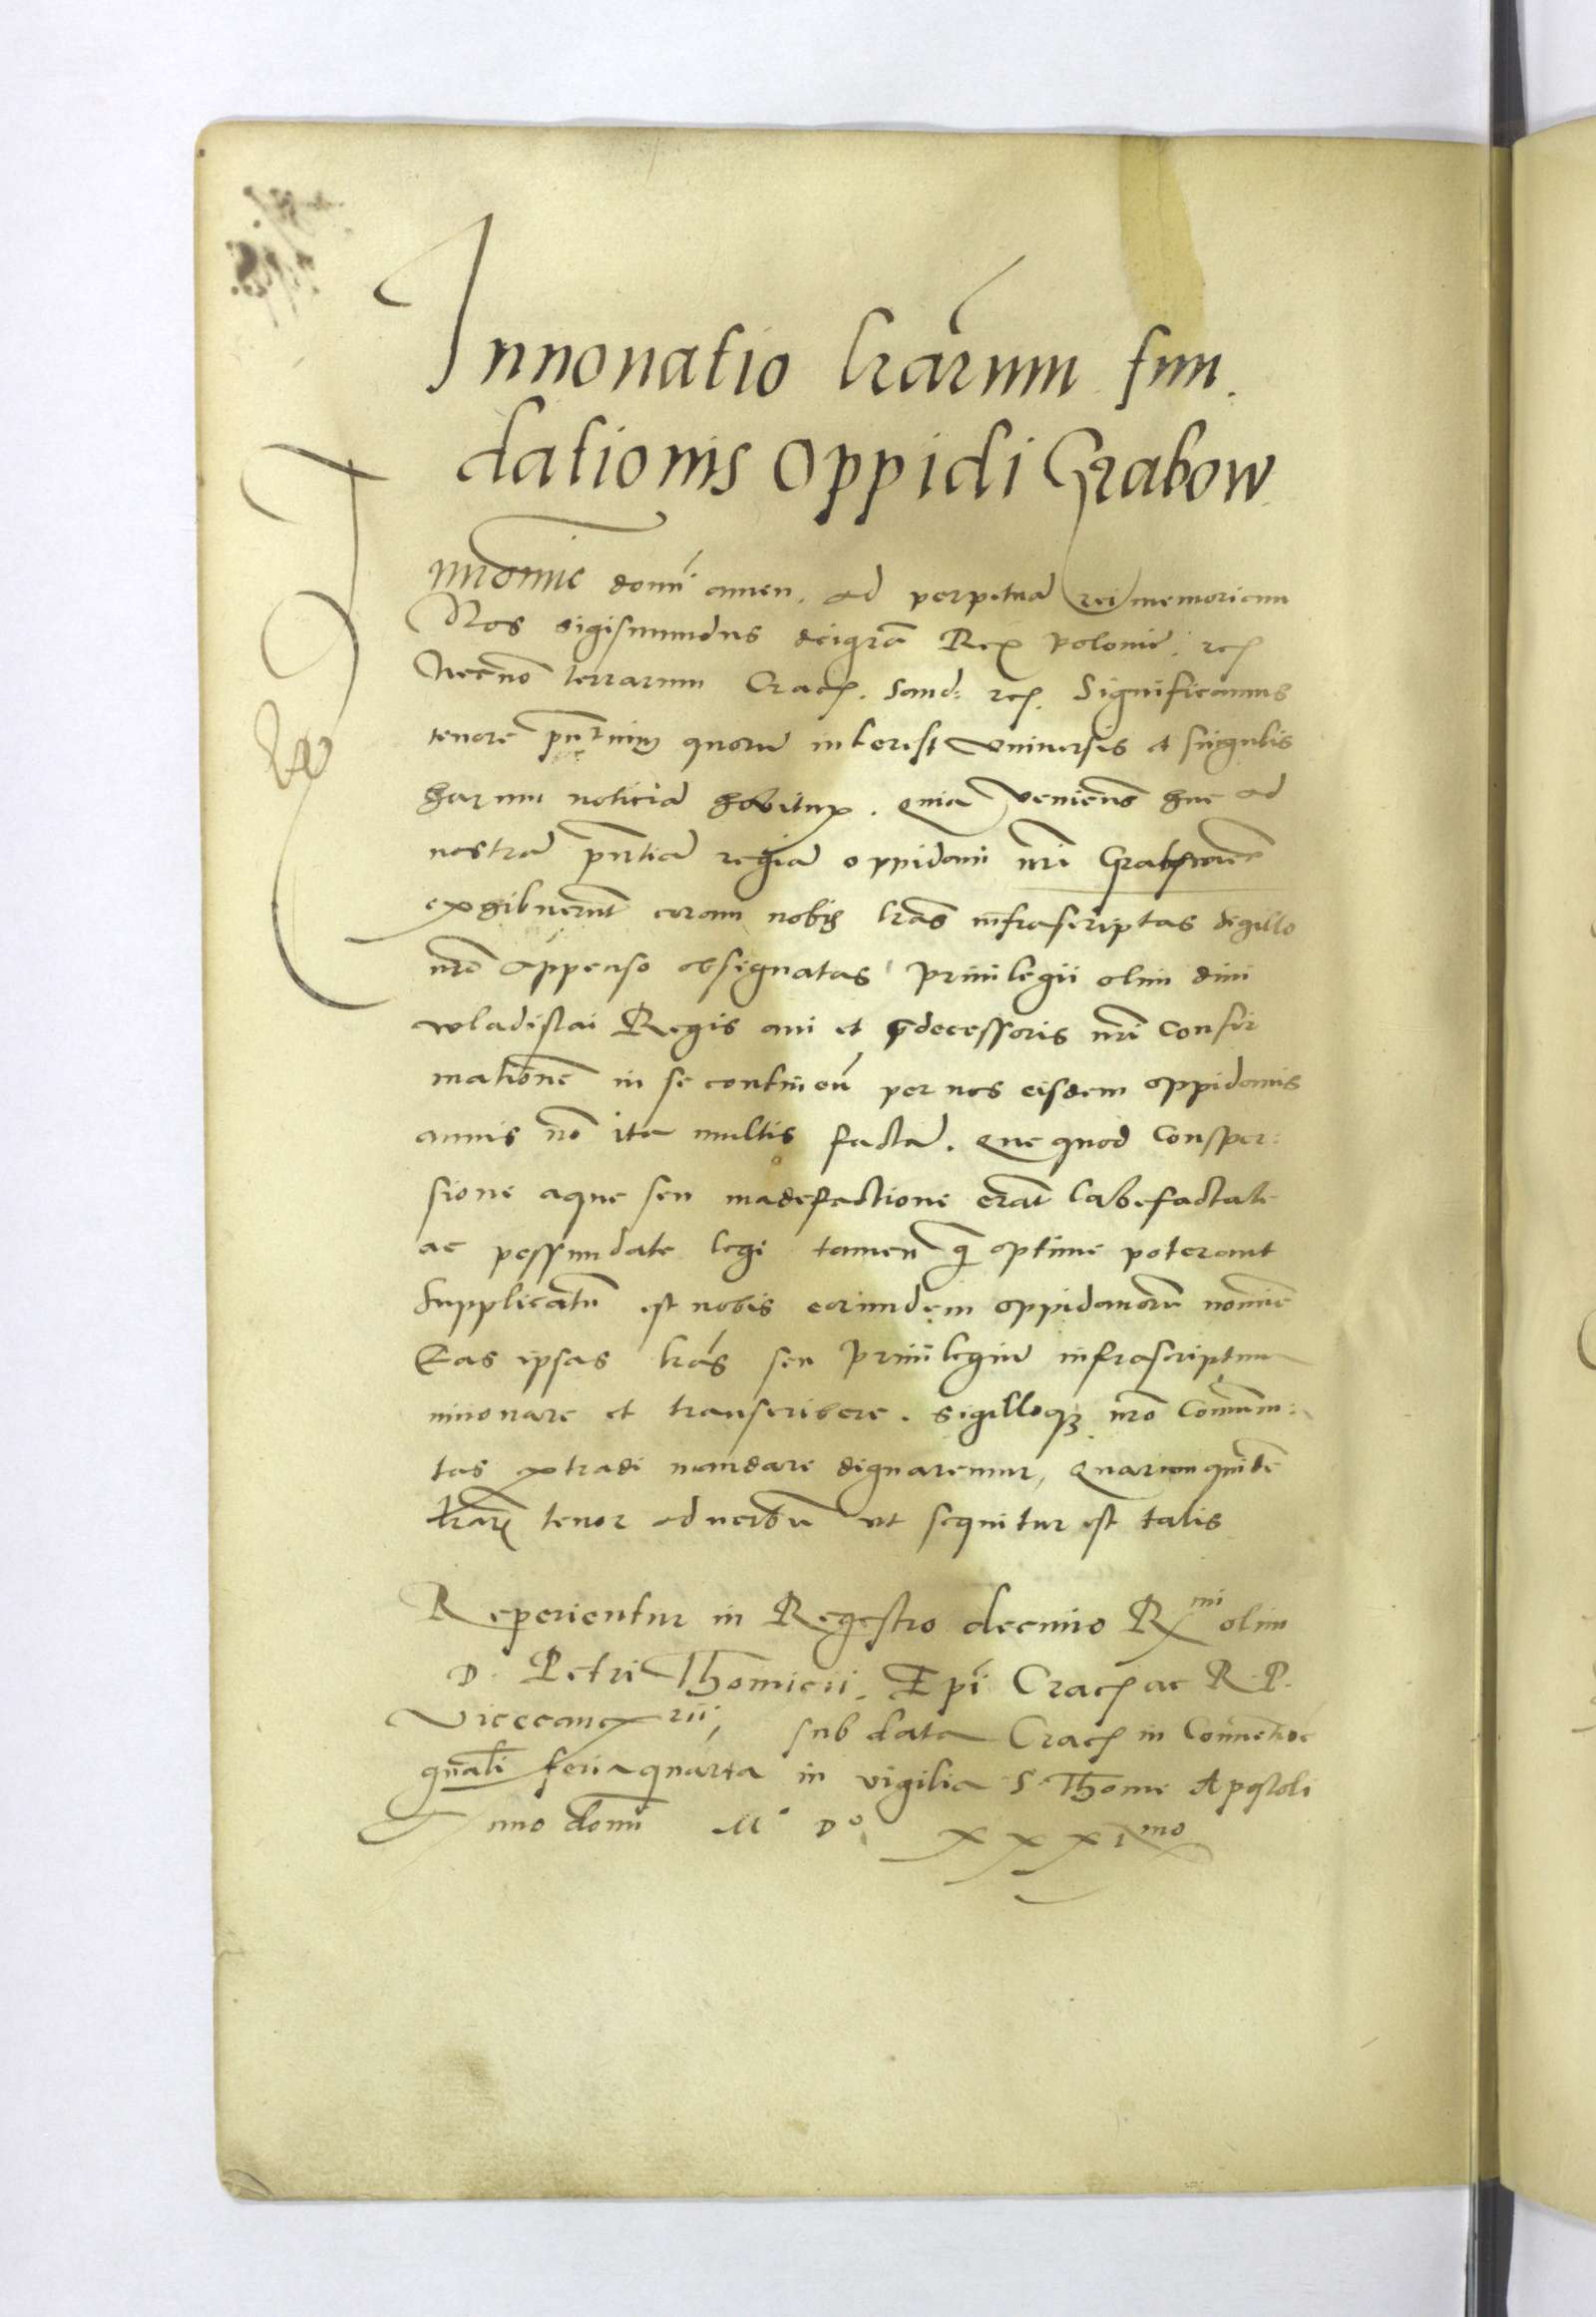 Innovatio lrarum fun
dationis Oppidi Grabow
In nomine domini amen. ad perpetuã rei memoriam
Nos Sigismundus dei grã Rex Polonie. rcz
Necnõ terrarum Cracz. Sand: rcz. Significamus
tenore pñtium quorũ interest universis et singulis
harum noticiã habitur. Quia venieñs huc ad
nostrã pñtiã regiã oppidani nri Grabowieñ
exhibuerũt coram nobis lras infrascriptas sigillo
nro appenso obsignatas privilegii olim divi
Wladislai Regis avi et predecessoris nri Confir
mationẽ in se contineñ per nos eisdem oppidanis
annis nõ ita multis factã. Que quod Consper:
sione aque seu madefactione erãt labefactate
ac pessundate legi tamen q optime poterant
Supplicatũ est nobis eorundem oppidanorũ nomine
Eas ipsas lras seu privilegiũ infrascriptum
innovare et transcribere. Sigilloqz nro Comuni:
tas extradi mandare dignaremur, Quarum quidẽ
lrarz tenor ad verbũ ut sequitur est talis
Reperientur in Regestro decimo Rmi olim
D. Petri Thomicii. Epi Cracz ac R. P.
Vicecancrii, sub data Cracz in Conventioe
gnali feria quarta in vigilia S. Thome Apostoli
Anno domi Mº Dº XXXImo